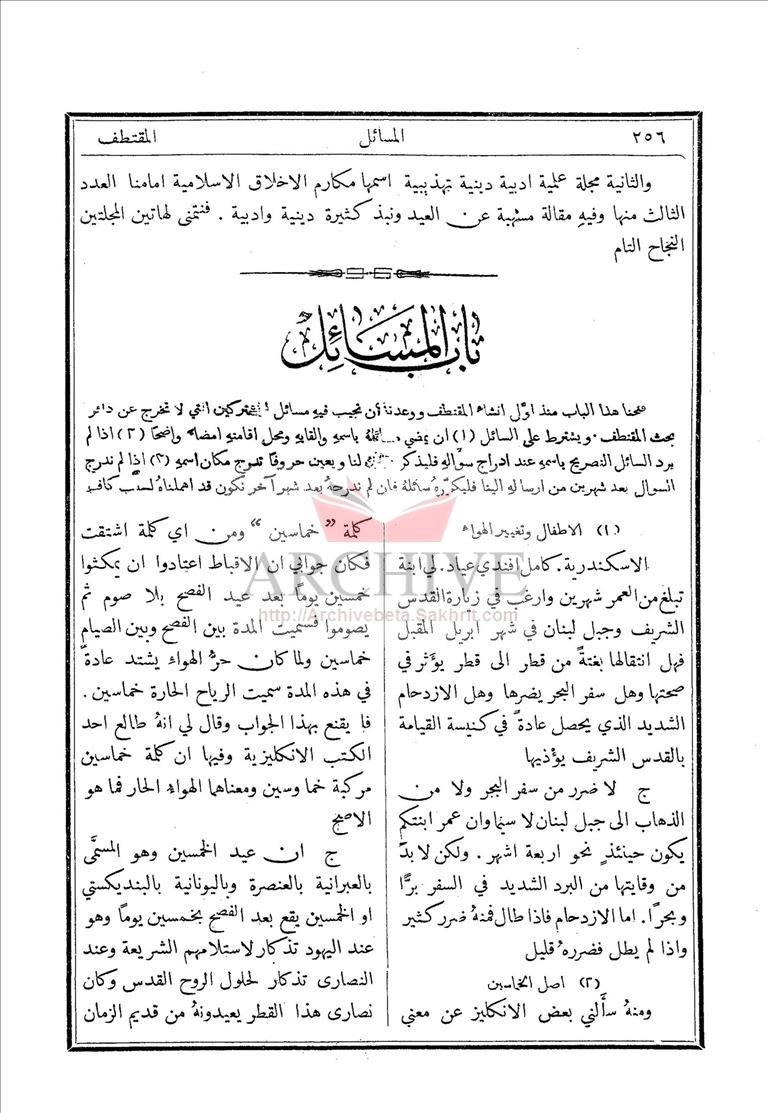 ٢٥٦ المسائل المقتطف
والثانية مجلة علمية ادبية دينية تهذيبية اسمها مكارم الاخلاق الاسلامية امامنا العدد
الثالث منها وفيهِ مقالة مسهبة عن العيد ونبذ كثيرة دينية وادبية . فنتمنى لهاتين المجلتين
النجاح التام
باب المسائل
فتحنا هذا الباب منذ اوَّل انشاء المقتطف ووعدنا أن نجيب فيهِ مسائل المشتركين التي لا تخرج عن دائرة
بحث المقتطف . ويشترط على السائل (١) ان يمضي مسائلهُ باسمهِ والقابهِ ومحل اقامتهِ امضاءً واضحًا (٢) اذا لم
يرد السائل التصريح باسمهِ عند ادراج سؤالهِ فليذكر ذلك لنا ويعين حروفًا تدرج مكان اسمهِ (٣) اذا لم تدرج
السوال بعد شهرين من ارسالهِ الينا فليكرّرهُ سائلهُ فان لم ندرجهُ بعد شهر آخر نكون قد اهملناهُ لسبب كافٍ
(١) الاطفال وتغيير الهواء
الاسكندرية . كامل افندي عياد . لي ابنة
تبلغ من العمر شهرين وارغب في زيارة القدس
الشريف وجبل لبنان في شهر ابريل المقبل
فهل انتقالها بغتةً من قطر الى قطر يؤثر في
صحتها وهل سفر البحر يضرها وهل الازدحام
الشديد الذي يحصل عادةً في كنيسة القيامة
بالقدس الشريف يؤذيها
ج لا ضرر من سفر البحر ولا من
الذهاب الى جبل لبنان لا سيما وان عمر ابنتكم
يكون حينئذٍ نحو اربعة اشهر . ولكن لا بدَّ
من وقايتها من البرد الشديد في السفر برًّا
وبحرًا . اما الازدحام فاذا طال فمنهُ ضرر كثير
واذا لم يطل فضررهُ قليل
(٢) اصل الخماسين
ومنهُ سأَلني بعض الانكليز عن معنى
كلمة "خماسين" ومن اي كلمة اشتقت
فكان جوابي ان الاقباط اعتادوا ان يمكثوا
خمسين يومًا بعد عيد الفصح بلا صوم ثم
يصوموا فسميت المدة بين الفصح وبين الصيام
خماسين ولما كان حرُّ الهواء يشتد عادةً
في هذه المدة سميت الرياح الحارة خماسين .
فلم يقنع بهذا الجواب وقال لي انهُ طالع احد
الكتب الانكليزية وفيها ان كلمة خماسين
مركبة خما وسين ومعناهما الهواء الحار فما هو
الاصح
ج ان عيد الخمسين وهو المسمَّى
بالعبرانية بالعنصرة وباليونانية بالبنديكستي
او الخمسين يقع بعد الفصح بخمسين يومًا وهو
عند اليهود تذكار لاستلامهم الشريعة وعند
النصارى تذكار لحلول الروح القدس وكان
نصارى هذا القطر يعيدونهُ من قديم الزمان
ARCHIVE
http://Archivebeta.Sakhrit.com